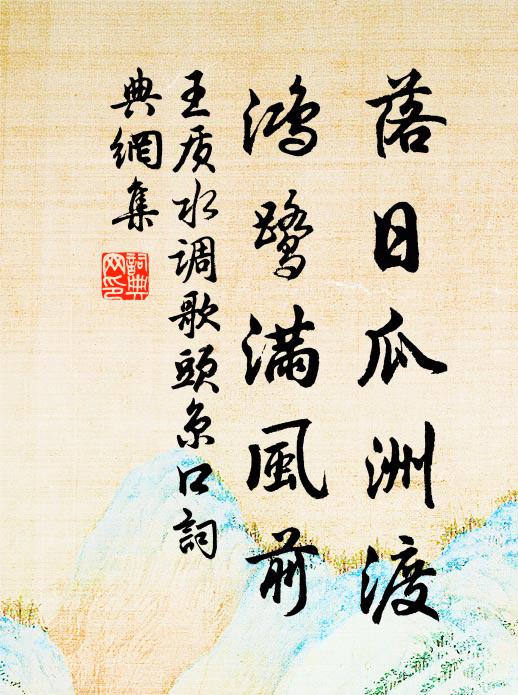 落日瓜洲渡
鴻鷺滿風前
王质水调歌頭京口詞
典網集
詞典網印